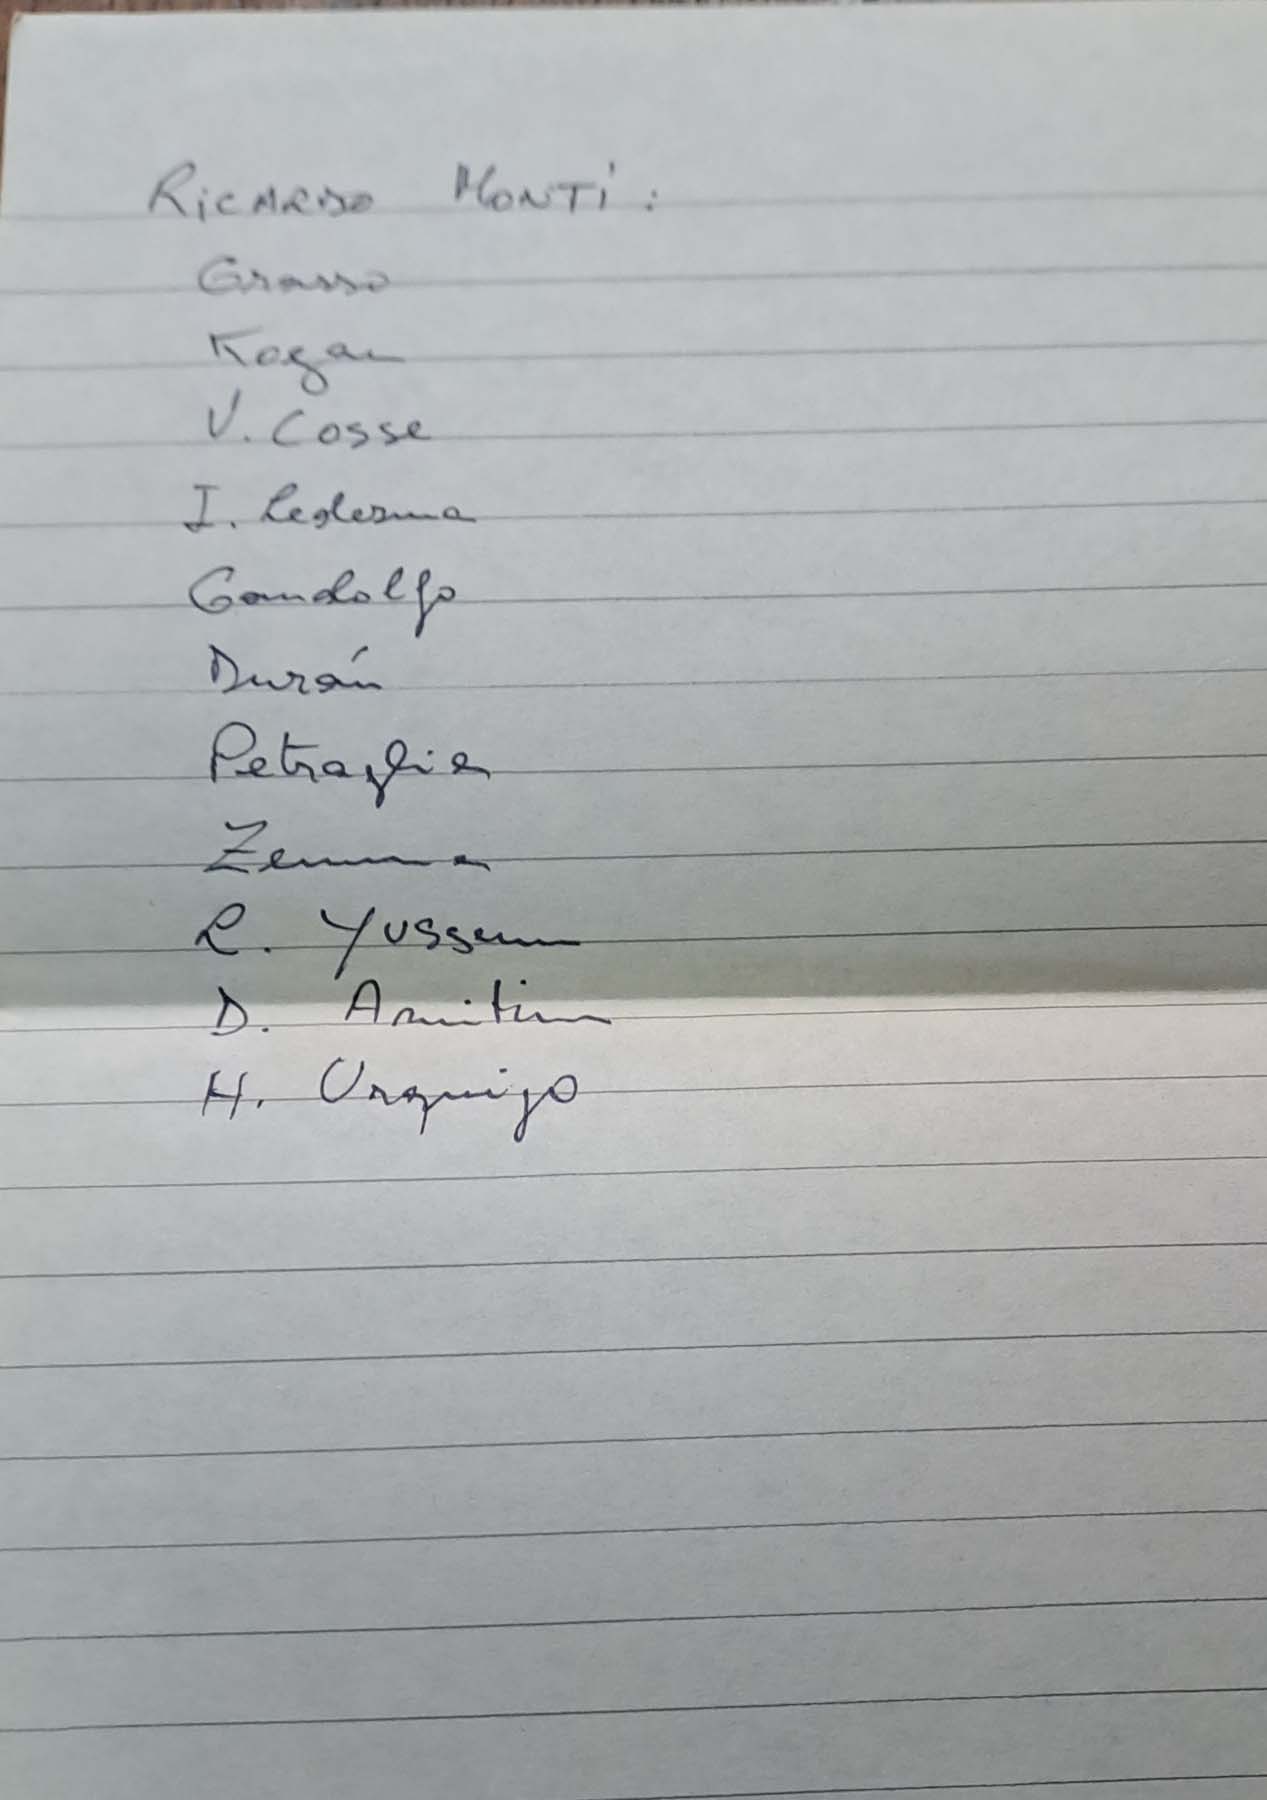 RICARDO MONTI:
Grasso
Kogan
V. Cosse
I. Ledesma
Gandolfo
Durán
Petraglia
Zemma
R. Yussem
D. Amitin
H. Urquijo